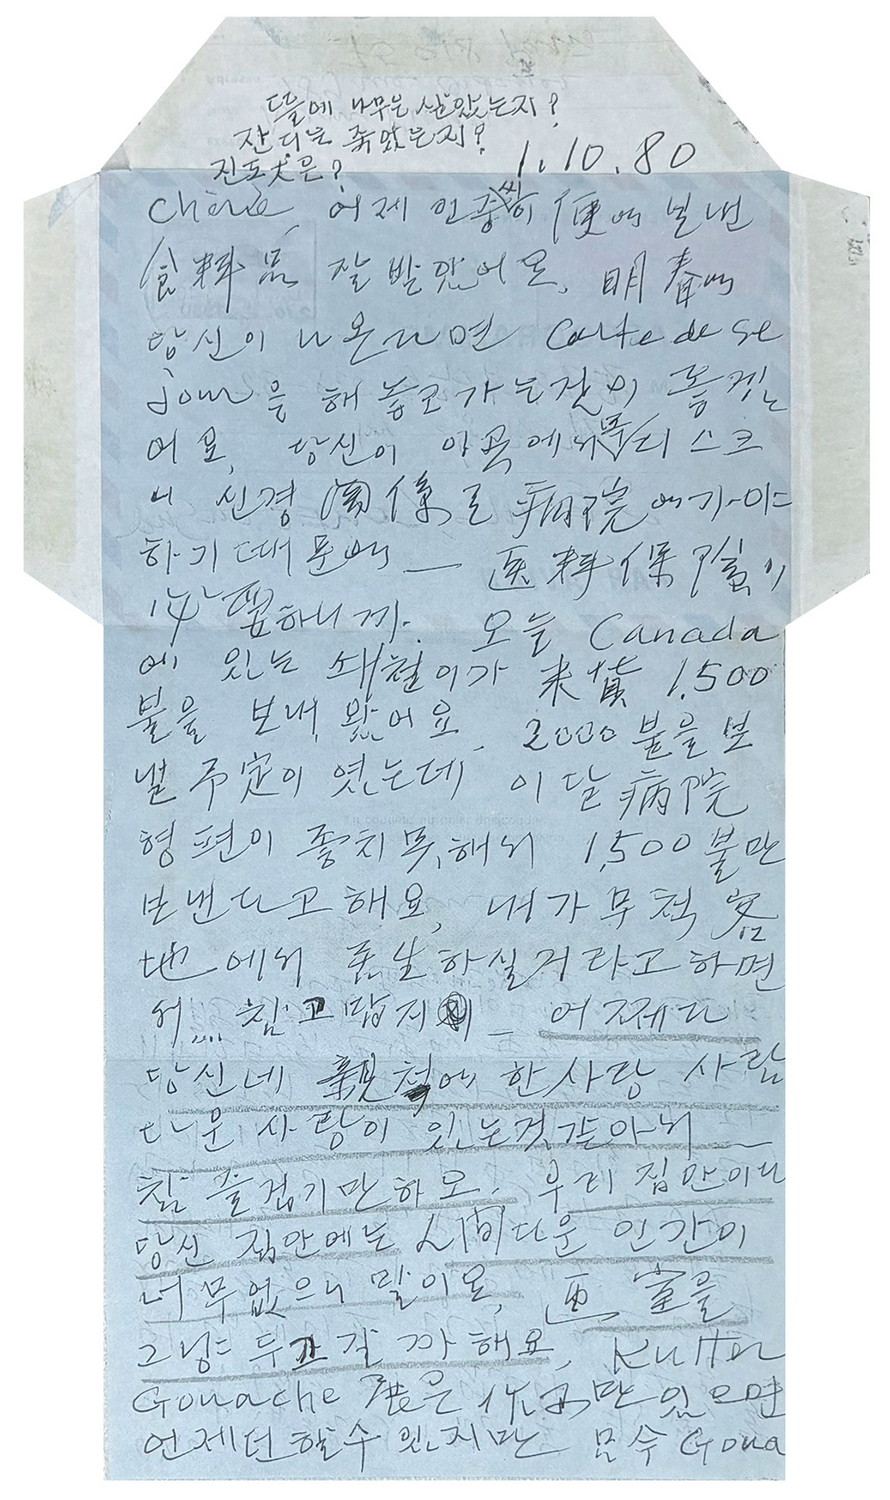 뜰에 나무는 살았는지?
잔디는 죽었는지?
진도犬은?
1.10.80
Chérie, 어제 인중씨히 便에 보낸
食料品 잘 받았어요, 明春에
당신이 나온다면 Carte de se
jour을 해 놓고 가는것이 좋겠는
어요, 당신이 약국에 디스크
니 신경 関係로 病院에 가야
하기 때문에 — 医料保険이
必要하니까. 오늘 Canada
에 있는 쇄철이가 米貨 1.500
불을 보내 왔어요, 2000불을 보
낼 予定이 였는데, 이달 病院
형편이 좋치 못해서 1,500불만
보낸다고 해요, 내가 무척 客
地에서 苦生하실거라고 하면
서.... 참 고맙지 — 어쩌다
당신네 親척에 한사람 사람
다운 사람이 있는것 같아서 —
참 즐겁기만 하오. 우리 집안이나
당신 집안에는 人間다운 인간이
너무 없으니 말이요, 画室을
그냥 두고 갈까 해요,
Gouache 展은 作品만 있으면
언제던 할수 있지만 몇수 Goua